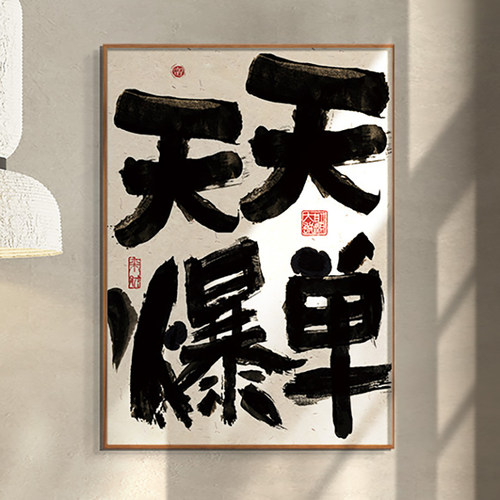 天天
爆单